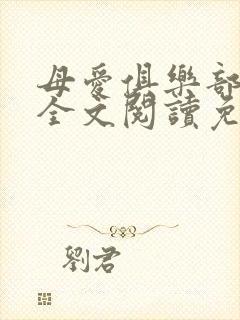 母愛俱樂部
全文閱讀免
劉君